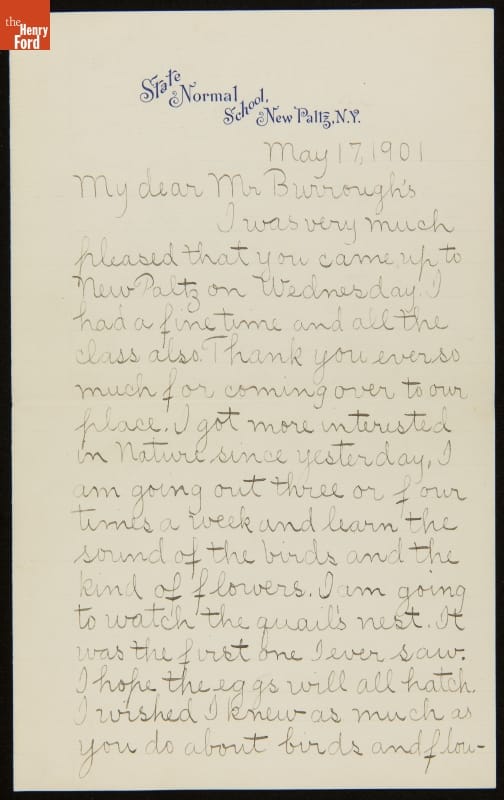 the
Henry
Ford
State Normal School, New Paltz, N.Y.
May 17, 1901
My dear Mr Burrough's
I was very much
pleased that you came up to
New Paltz on Wednesday. I
had a fine time and all the
class also. Thank you ever so
much for coming over to our
place. I got more interested
in Nature since yesterday, I
am going out three or four
times a week and learn the
sound of the birds and the
kind of flowers. I am going
to watch the quail's nest. It
was the first one I ever saw.
I hope the eggs will all hatch.
I wished I knew as much as
you do about birds and flow-